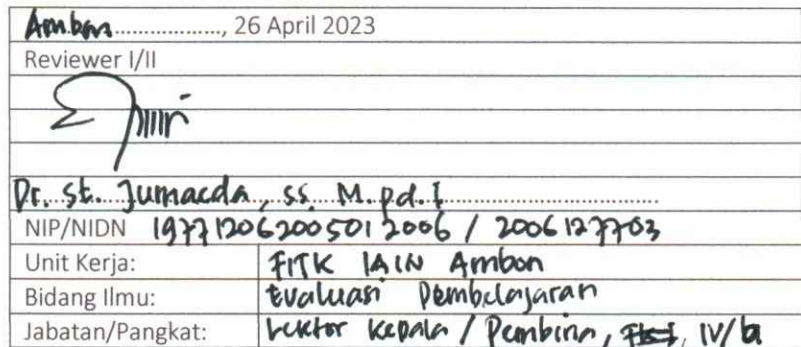 Ambon..................., 26 April 2023
Reviewer I/II
Dr. St. Jumaeda, SS. M.Pd.I
NIP/NIDN 197712062005012006 / 2006127703
Unit Kerja: FITK IAIN Ambon
Bidang Ilmu: Evaluasi Pembelajaran
Jabatan/Pangkat: Lektor Kepala / Pembina, IV/a